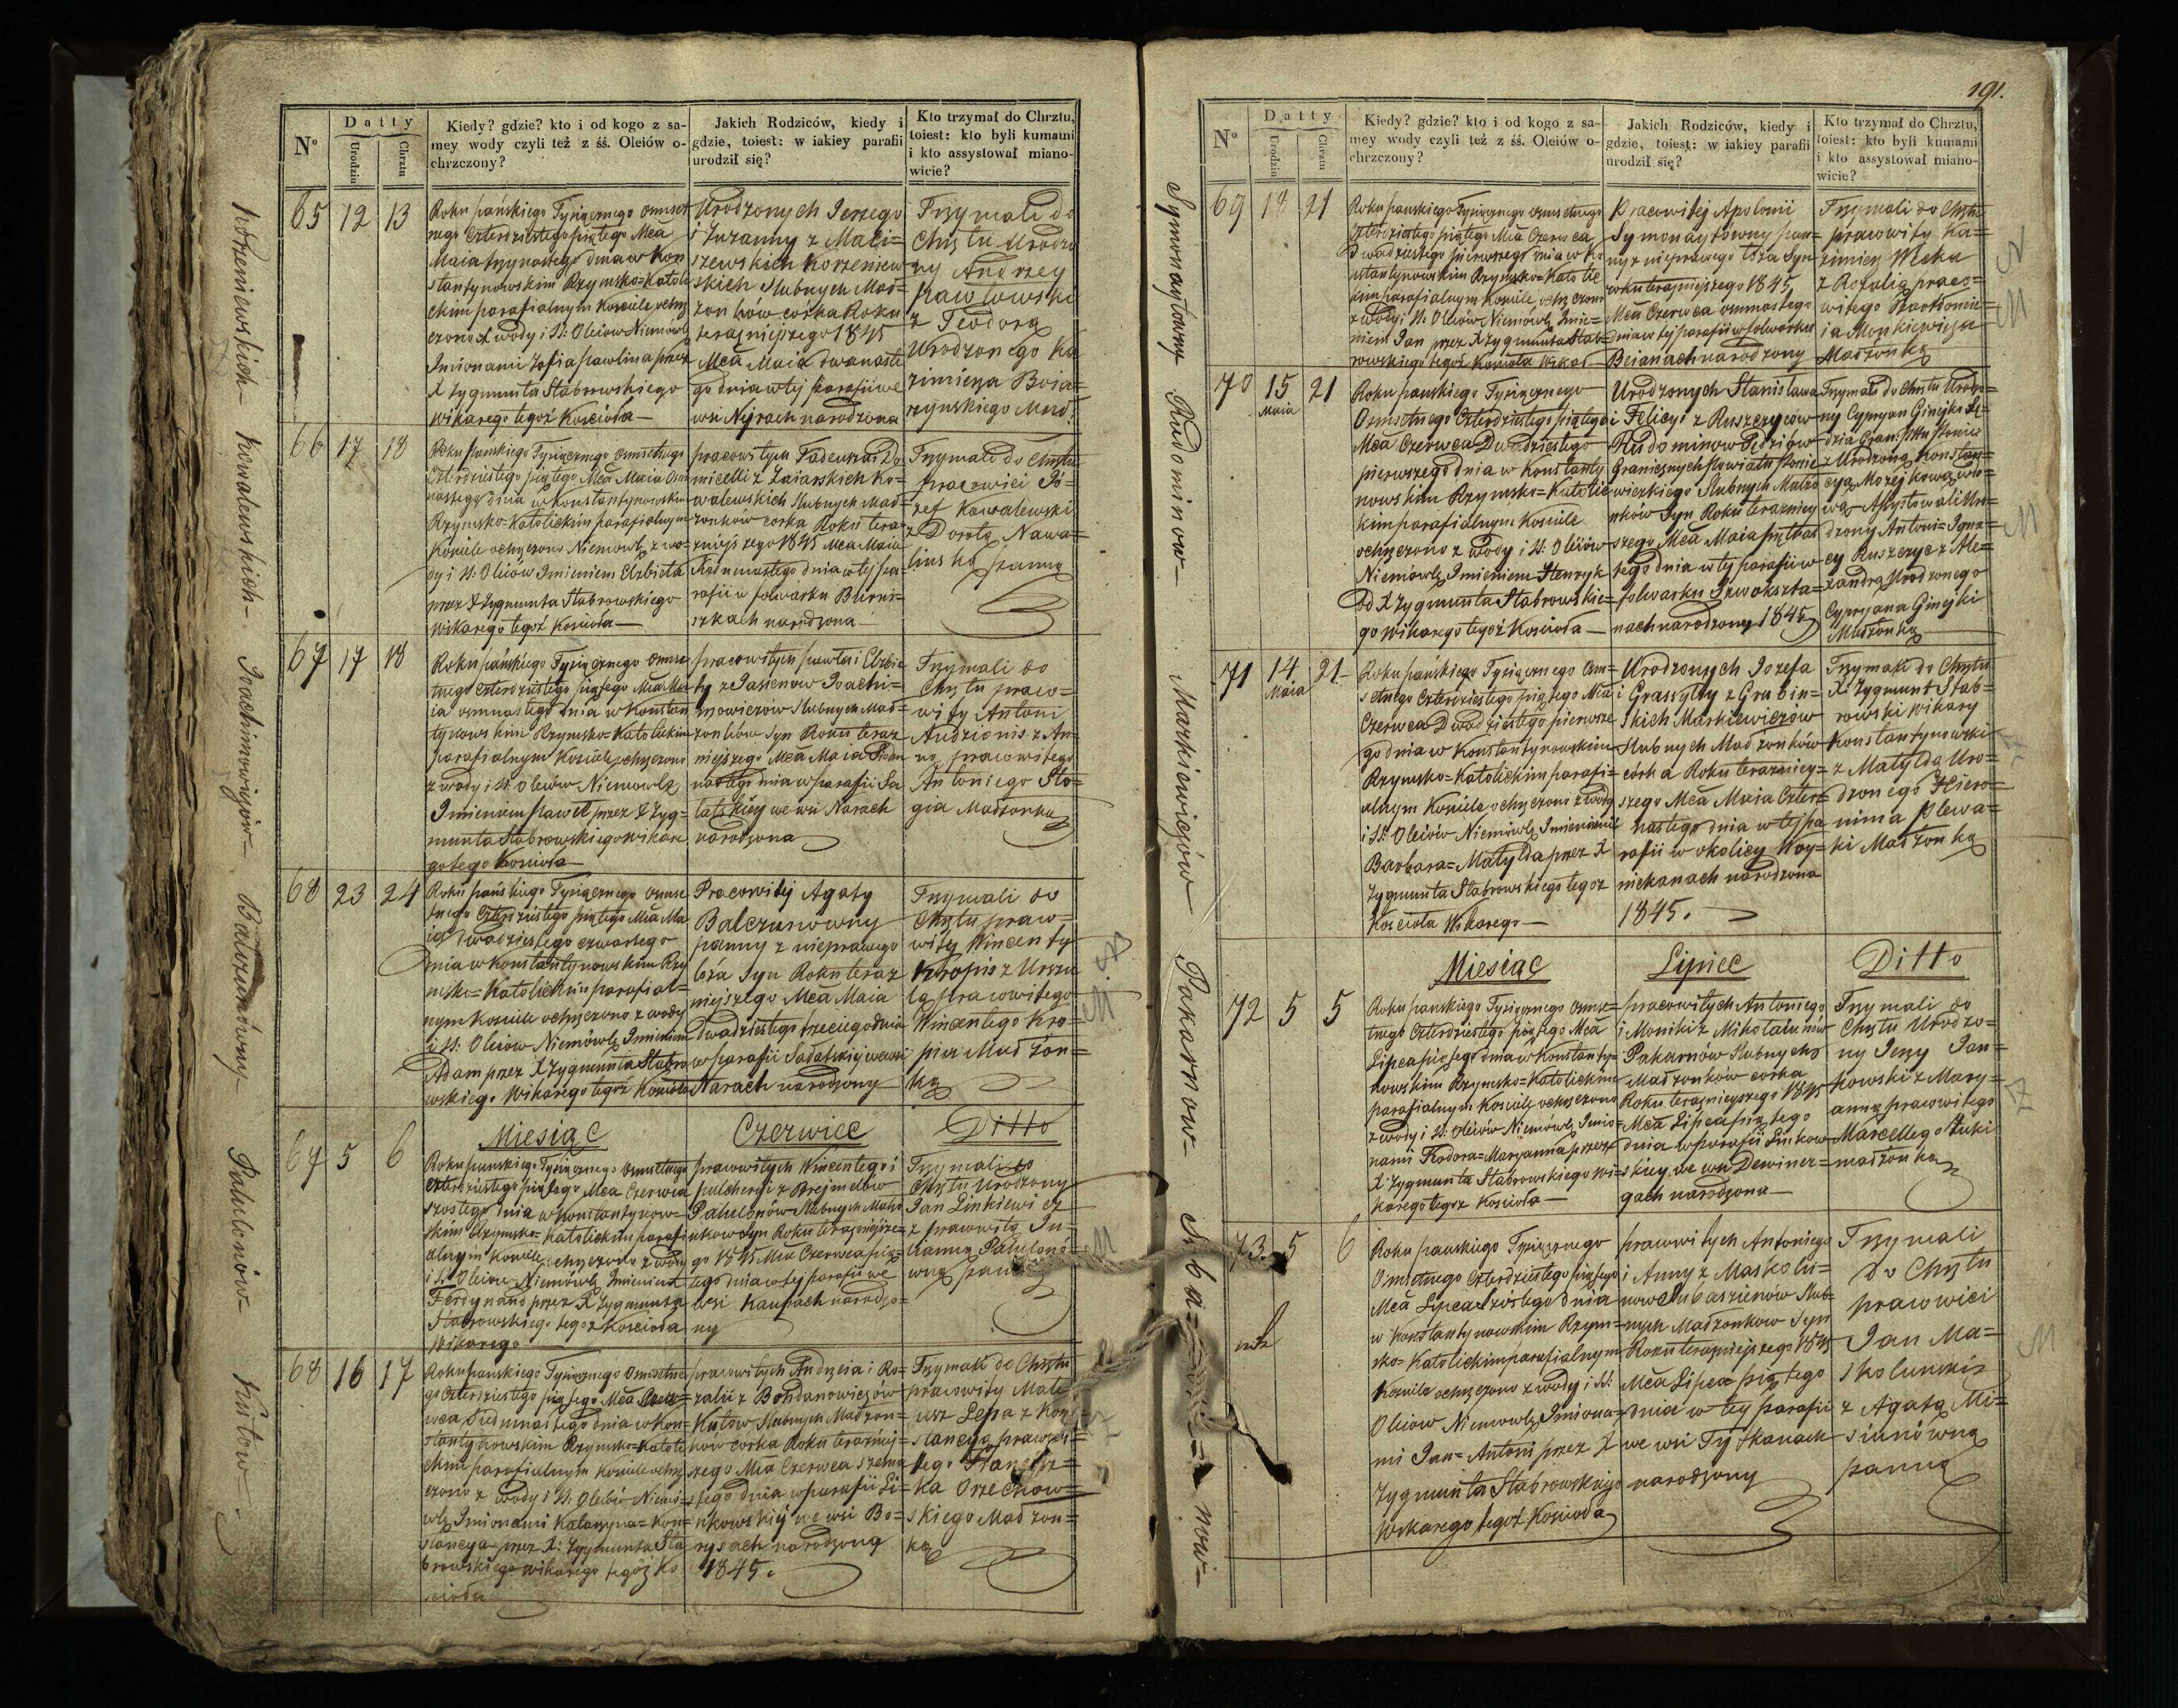 N°
Datty
Urodziu
Chrztu
Kiedy? gdzie? kto i od kogo z sa-
mey wody czyli też z śś. Oleiów o-
chrzczony?
Jakich Rodziców, kiedy i
gdzie, toiest: w iakiey parafii
urodził się?
Kto trzymał do Chrztu,
toiest: kto byli kumami
i kto assystował miano-
wicie?
Korzeniewskich
65 12 13
Roku pańskiego Tysiącznego osmset
nego czterdziestego piątego Mca
Maia trzynastego dnia w Kon
stantynowskim Rzymsko=Katoli
ckim parafialnym Kosciele ochrz
czono z wody i SS: Oleiow Niemowlę
Imionami Zofia Pawlina przez
X Zygmunta Stabrowskiego
wikarego tegoż Kościoła—
Urodzonych Jerzego
i Zuzanny z Mali=
szewskich Korzeniew
skich Slubnych Mał=
żonków córka Roku
teraznieyszego 1845
Mca Maia dwanaste
go dnia w tey parafii we
wsi Nyrach narodzona
Trzymali do
Chrztu Urodzo
ny Andrzey
Pawłowski
z Teodorą
Urodzonego Ka
zimierza Boia=
rzynskiego Mał:
Kowalewskich
66 17 18
Roku pańskiego Tysiącznego osmsetnego
Czterdziestego piątego Mca Maia Osm
nastego dnia w Konstantynowskim
Rzymsko=Katolickim parafialnym
Kosciele ochrzczono Niemowlę z wo=
dy i SS: Oleiow Imieniem Elzbieta
przez X Zygmunta Stabrowskiego
wikarego tegoż Kościoła—
pracowitych Tadeusza Do
micelli z Zaiarskich Ko=
walewskich Slubnych Mał=
żonków corka Roku teraz
znieyszego 1845 Mca Maia
Siedmnastego dnia w tey pa=
rafii w folwarku Burni=
szkach narodzona—
Trzymali do Chrztu
pracowici Jó=
zef Kowalewski
z Dorotą Nawa=
linską panną
Joachimowiczów
67 17 18
Roku pańskiego Tysiącznego osmse
tnego czterdziestego piątego Mca Ma
ia osmnastego dnia w Konstan
tynowskim Rzymsko=Katolickim
parafialnym Kosciele ochrzczono
z wody i SS: oleiów Niemowlę
Imieniem Paweł przez X Zyg=
munta Stabrowskiego wikare
go tego Kościoła—
pracowitych Pawła i Elzbie
ty z Jasienow Joachi=
mowiczow Slubnych Mał=
żonków Syn Roku teraz
nieyszego Mca Maia Siedm
nastego dnia w parafii Sa
łatskiey we wsi Narach
narodzona
Trzymali do
Chrztu praco=
wity Antoni
Audzionis z An=
ną pracowitego
Antoniego Sto=
gia Małżonką
Balczunówny
68 23 24
Roku pańskiego Tysiącznego osmse
tnego Czterdziestego piątego Mca Ma
ia dwadziestego czwartego
dnia w Konstantynowskim Rzy
msko=Katolickim parafial=
nym Kosciele ochrzczono z wody
i SS: Oleiow Niemowlę Imieniem
Adam przez X Zygmunta Stabro
wskiego Wikarego tegoż Kościoła
Pracowitey Agaty
Balczunowny
panny z nieprawego
łoża Syn Roku teraz
nieyszego Mca Maia
dwadziestego trzeciego dnia
w parafii Sałatskiey we wsi
Narach narodzony
Trzymali do
Chrztu praco=
wity Wincenty
Kropis z Urszu
lą pracowitego
Wincentego Kro=
pisa Małżon=
ką
Miesiąc Czerwiec Ditto
Palulonów
67 5 6
Roku pańskiego Tysiącznego osmsetnego
czterdziestego piątego Mca Czerwca
szostego dnia w Konstantynow=
skim Rzymsko=Katolickim parafi
alnym Kosciele ochrzczono z wody
i SS: Oleiow Niemówlę Imieniem
Ferdynand przez X Zygmunta
Stabrowskiego tegoż Kościoła
Wikarego
pracowitych Wincentego i
Pulcheryi z Brejmelow
Palulonów Slubnych Małżo
nkow Syn Roku teraznieysze=
go 1845 Mca Czerwca pią=
tego dnia w tey parafii we
wsi Kaunach narodzo=
ny
Trzymali do
Chrztu Urodzony
Jan Linkiewicz
z pracowitą Ju=
lianną Palulono
wną panną
Kutow
68 16 17
Roku pańskiego Tysiącznego Osmsetne
go Czterdziestego piątego Mca Czer=
wca Siedmnastego dnia w Kon=
stantynowskim Rzymsko=Katoli
ckim parafialnym Kosciele ochrz
czono z wody i SS: Oleiów Niemo=
wlę Imionami Katarzyna=Kon=
stancya przez X: Zygmunta Sta
browskiego wikarego tegoż Ko
scioła
pracowitych Andrzeia i Ro=
zalii z Bohdanowiczów
Kutow Slubnych Małżon=
kow corka Roku teraźniey=
szego Mca Czerwca szesna
stego dnia w parafii Li=
nkowskiey we wsi Bo=
rysach narodzona
1845.
Trzymali do Chrztu
pracowity Mate
usz Lepa z Kon=
stancyą pracowi=
tego Franciszka
Orzechow=
skiego Małżon=
ką
191.
N°
Datty
Urodziu
Chrztu
Kiedy? gdzie? kto i od kogo z sa-
mey wody czyli też z śś. Oleiów o-
chrzczony?
Jakich Rodziców, kiedy i
gdzie, toiest: w iakiey parafii
urodził się?
Kto trzymał do Chrztu,
toiest: kto byli kumami
i kto assystował miano-
wicie?
Symonaytowny
69 18 21
Roku pańskiego Tysiącznego osmsetnego
Czterdziestego piątego Mca Czerwca
Dwadziestego pierwszego dnia w Ko
nstantynowskim Rzymsko=Katolic
kim parafialnym Kosciele ochrzczono
z wody i SS: Oleiów Niemówlę Imie=
niem Jan przez X Zygmunta Stab=
rowskiego tegoż Kościoła Wikar.
Pracowitéj Apolonii
Symonaytowny pan=
ny z nieprawego łoża Syn
roku teraznieyszego 1845
Mca Czerwca osmnastego
dnia w tey parafii w folwarku
Beianach narodzony
Trzymali do Chrztu
pracowity Ka=
zimierz Weska
z Rozalią praco=
witego Bartłomie=
ia Monkiewicza
Małżonką
Rudominow
70 15 Maia 21
Roku pańskiego Tysiącznego
Osmsetnego Czterdziestego piątego
Mca Czerwca Dwudziestego
pierwszego dnia w Konstanty
nowskim Rzymsko=Katolic
kim parafialnym Kosciele
ochrzczono z wody i SS: Oleiów
Niemówlę Imieniem Henryk
od X Zygmunta Stabrowskie=
go Wikarego tegoż Kościoła—
Urodzonych Stanisława
i Felicyi z Ruszczyców
Rudominow Sędziów
Granicznych Powiatu Ponie
wiezkiego Slubnych Małżo
nków Syn Roku terazniey
szego Mca Maia piętnas
tego dnia w tey parafii w
folwarku Szwokszta=
nach narodzony 1845
Trzymali do Chrztu Urodzo=
ny Cypryan Ginejko Sę=
dzia Gran: Pttu Poniew
z Urodzoną Konstan=
cyą Możeykową wdo=
wą Assystowali Uro=
dzony Antoni=Igna=
cy Ruszczyc z Ale=
xandrą Urodzonego
Cypryana Ginejki
Małżonką
Markiewiczów
71 14 Maia 21
Roku pańskiego Tysiącznego Osm=
setnego Czterdziestego piątego Mca
Czerwca Dwadziestego pierwsze
go dnia w Konstantynowskim
Rzymsko=Katolickim parafi=
alnym Kosciele ochrzczono z wody
i SS: Oleiów Niemówlę Imionami
Barbara=Matylda przez X
Zygmunta Stabrowskiego tegoż
Kościoła Wikarego—
Urodzonych Jozefa
i Grassyldy z Grubin=
skich Markiewiczów
Slubnych Małżonków
córka Roku terazniey=
szego Mca Maia Czter=
nastego dnia w tey pa
rafii w okolicy Woy=
niekanach narodzona
1845.
Trzymali do Chrztu
X: Zygmunt Stab=
rowski Wikary
Konstantynowski
z Matyldą Uro=
dzonego Hiero=
nima Plewa=
ki Małżonką
Miesiąc Lipiec Ditto
Pakarnow
72 5 5
Roku pańskiego Tysiącznego Osmse=
tnego Czterdziestego piątego Mca
Lipca piątego dnia w Konstanty=
nowskim Rzymsko=Katolickim
parafialnym Kosciele ochrzczono
z wody i SS: Oleiów Niemówlę Imio=
nami Teodora=Maryanna przez
X Zygmunta Stabrowskiego wi=
karego tegoż Kościoła—
pracowitych Antoniego
i Moniki z Mikołaiunów
Pakarnów Slubnych
Małżonków corka
Roku teraznieyszego 1845
Mca Lipca piątego
dnia w parafii Linkow
skiey we wsi Dewiner=
gach narodzona—
Trzymali do
Chrztu Urodzo=
ny Jerzy Jan=
kowski z Mary=
anną pracowitego
Marcellego Łuki
małżonką
73 5 6
Roku pańskiego Tysiącznego
Osmsetnego Czterdziestego piątego
Mca Lipca Szostego dnia
w Konstantynowskim Rzym=
sko=Katolickim parafialnym
Kosciele ochrzczono z wody i SS:
Oleiow Niemowlę Imiona=
mi Jan=Antoni przez X
Zygmunta Stabrowskiego
Wikarego tegoż Kościoła
pracowitych Antoniego
i Anny z Maskolu=
now Slub=
nych Małżonkow Syn
Roku teraznieyszego 1845
Mca Lipca piątego
dnia w tey parafii
we wsi Tyszkanach
narodzony
Trzymali
do Chrztu
pracowici
Jan Ma=
skolunis
z Agatą Mi=
siunówną
panną